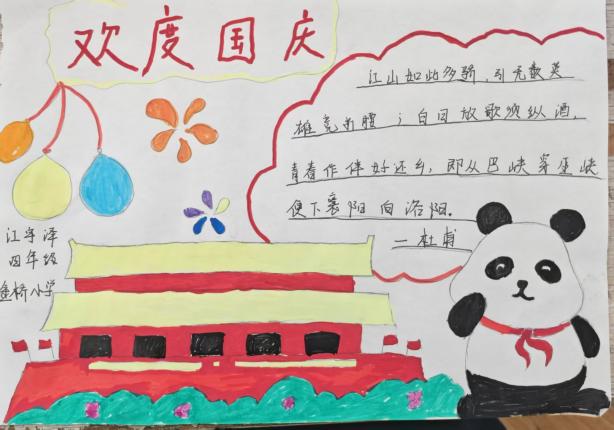 欢度国庆
江山如此多娇，引无数英
雄竞折腰；白日放歌须纵酒，
青春作伴好还乡，即从巴峡穿巫峡
便下襄阳向洛阳。
—杜甫
江宇泽
四年级
桥小学